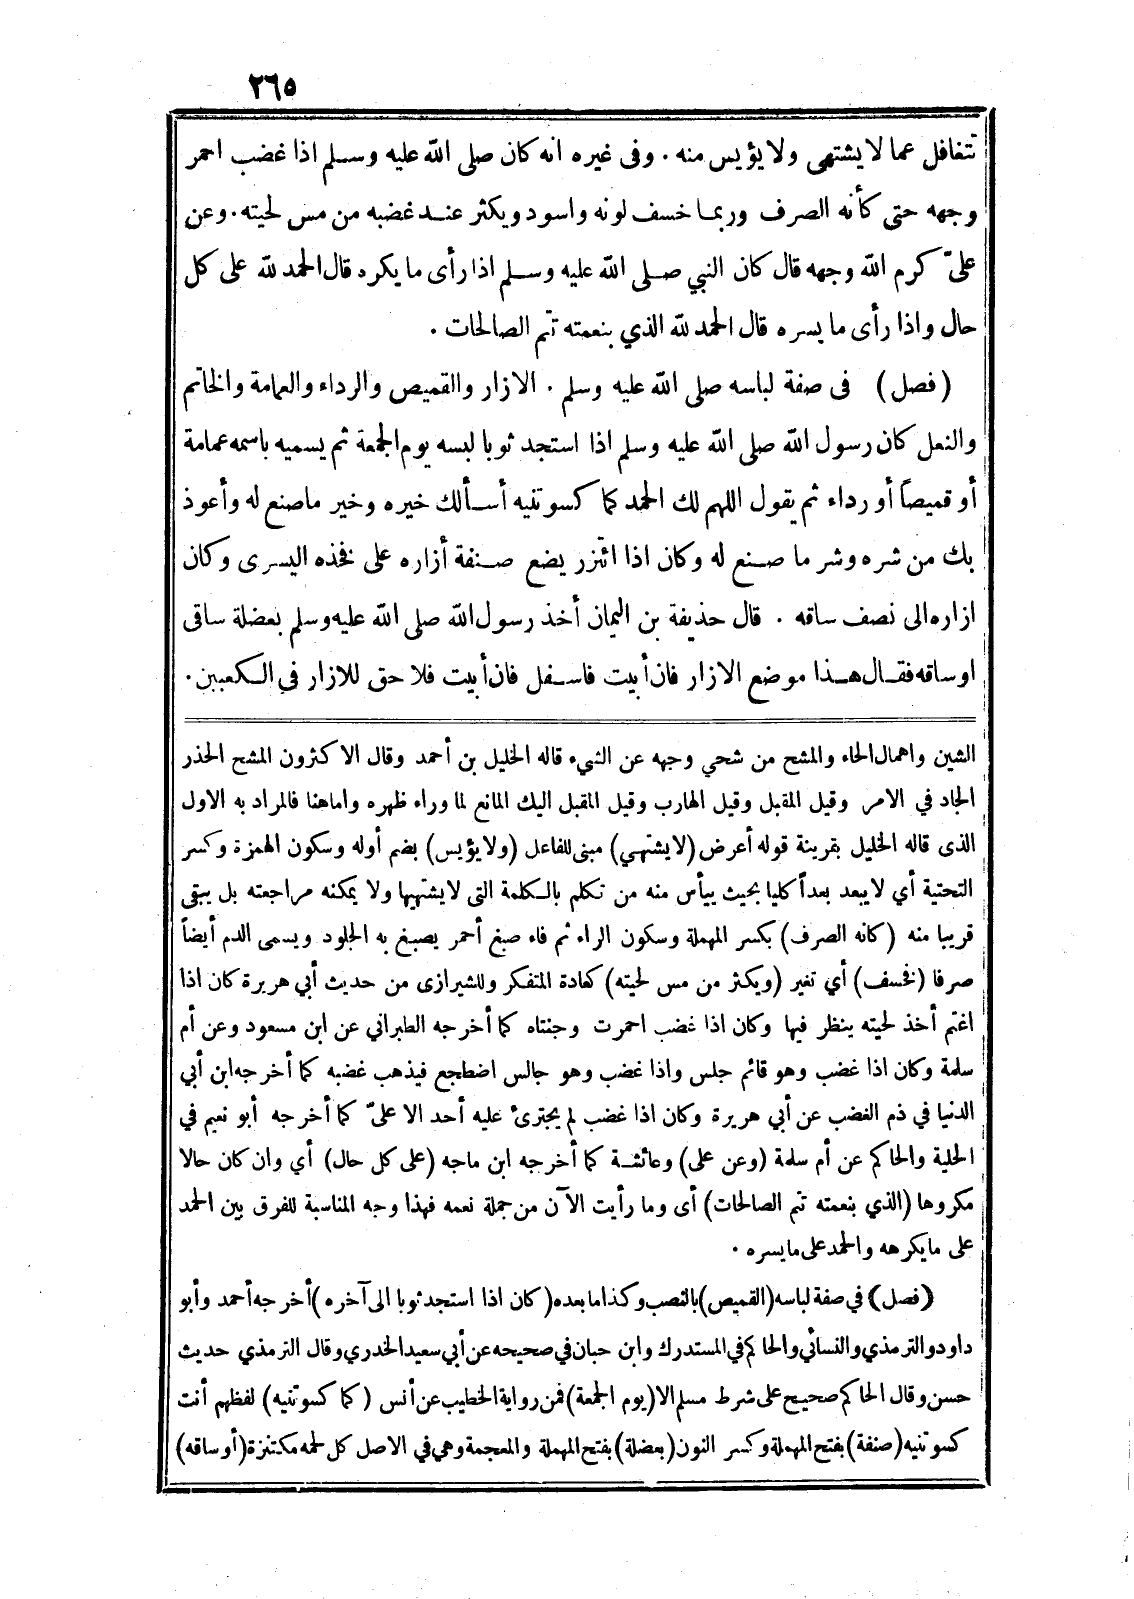 ٢٦٥
تتغافل عما لا يشتهى ولا يؤيس منه . وفى غيره انه كان صلى الله عليه وسلم اذا غضب احمر
وجهه حتى كأنه الصرف وربما خسف لونه واسود ويكثر عند غضبه من مس لحيته . وعن
علىّ كرم الله وجهه قال كان النبي صلى الله عليه وسلم اذا رأى ما يكره قال الحمد لله على كل
حال واذا رأى ما يسره قال الحمد لله الذي بنعمته تتم الصالحات .
( فصل ) فى صفة لباسه صلى الله عليه وسلم . الازار والقميص والرداء والعمامة والخاتم
والنعل كان رسول الله صلى الله عليه وسلم اذا استجد ثوبا لبسه يوم الجمعة ثم يسميه باسمه عمامة
أو قميصاً أو رداء ثم يقول اللهم لك الحمد كما كسوتنيه أسألك خيره وخير ماصنع له وأعوذ
بك من شره وشر ما صنع له وكان اذا ائتزر يضع صنفة أزاره على فخذه اليسرى وكان
ازاره الى نصف ساقه . قال حذيفة بن اليمان أخذ رسول الله صلى الله عليه وسلم بعضلة ساقى
اوساقه فقال هذا موضع الازار فان أبيت فاسفل فان أبيت فلا حق للازار في الكعبين .
الشين واهمال الحاء والمشح من شحي وجهه عن الشيء قاله الخليل بن أحمد وقال الاكثرون المشح الحذر
الجاد في الامر وقيل المقبل وقيل الهارب وقيل المقبل اليك المانع لما وراء ظهره واماهنا فالمراد به الاول
الذى قاله الخليل بقرينة قوله أعرض (لايشتهي) مبنى للفاعل (ولايؤيس) بضم أوله وسكون الهمزة وكسر
التحتية أي لا يبعد بعداً كليا بحيث ييأس منه من تكلم بالكلمة التى لايشتهيها ولا يمكنه مراجعته بل يبقى
قريبا منه (كانه الصرف) بكسر المهملة وسكون الراء ثم فاء صبغ أحمر يصبغ به الجلود ويسمى الدم أيضاً
صرفا (فخسف) أي تغير (ويكثر من مس لحيته) كعادة المتفكر وللشيرازى من حديث أبي هريرة كان اذا
اغتم أخذ لحيته ينظر فيها وكان اذا غضب احمرت وجنتاه كما أخرجه الطبراني عن ابن مسعود وعن أم
سلمة وكان اذا غضب وهو قائم جلس واذا غضب وهو جالس اضطجع فيذهب غضبه كما أخرجه ابن أبي
الدنيا في ذم الغضب عن أبي هريرة وكان اذا غضب لم يجترئ عليه أحد الا علىّ كما أخرجه أبو نعيم في
الحلية والحاكم عن أم سلمة (وعن على) وعائشة كما أخرجه ابن ماجه (على كل حال) أي وان كان حالا
مكروها (الذي بنعمته تتم الصالحات) أى وما رأيت الآن من جملة نعمه فهذا وجه المناسبة للفرق بين الحمد
على مايكرهه والحمد على مايسره .
( فصل ) في صفة لباسه (القميص) بالنصب وكذا ما بعده (كان اذا استجد ثوبا الى آخره) أخرجه أحمد وأبو
داود والترمذي والنسائي والحاكم في المستدرك وابن حبان في صحيحه عن أبي سعيد الخدري وقال الترمذي حديث
حسن وقال الحاكم صحيح على شرط مسلم الا (يوم الجمعة) فمن رواية الخطيب عن أنس (كما كسوتنيه) لفظهم أنت
كسوتنيه (صنفة) بفتح المهملة وكسر النون (بعضلة) بفتح المهملة والمعجمة وهي في الاصل كل لحمه مكتنزة (أوساقه)